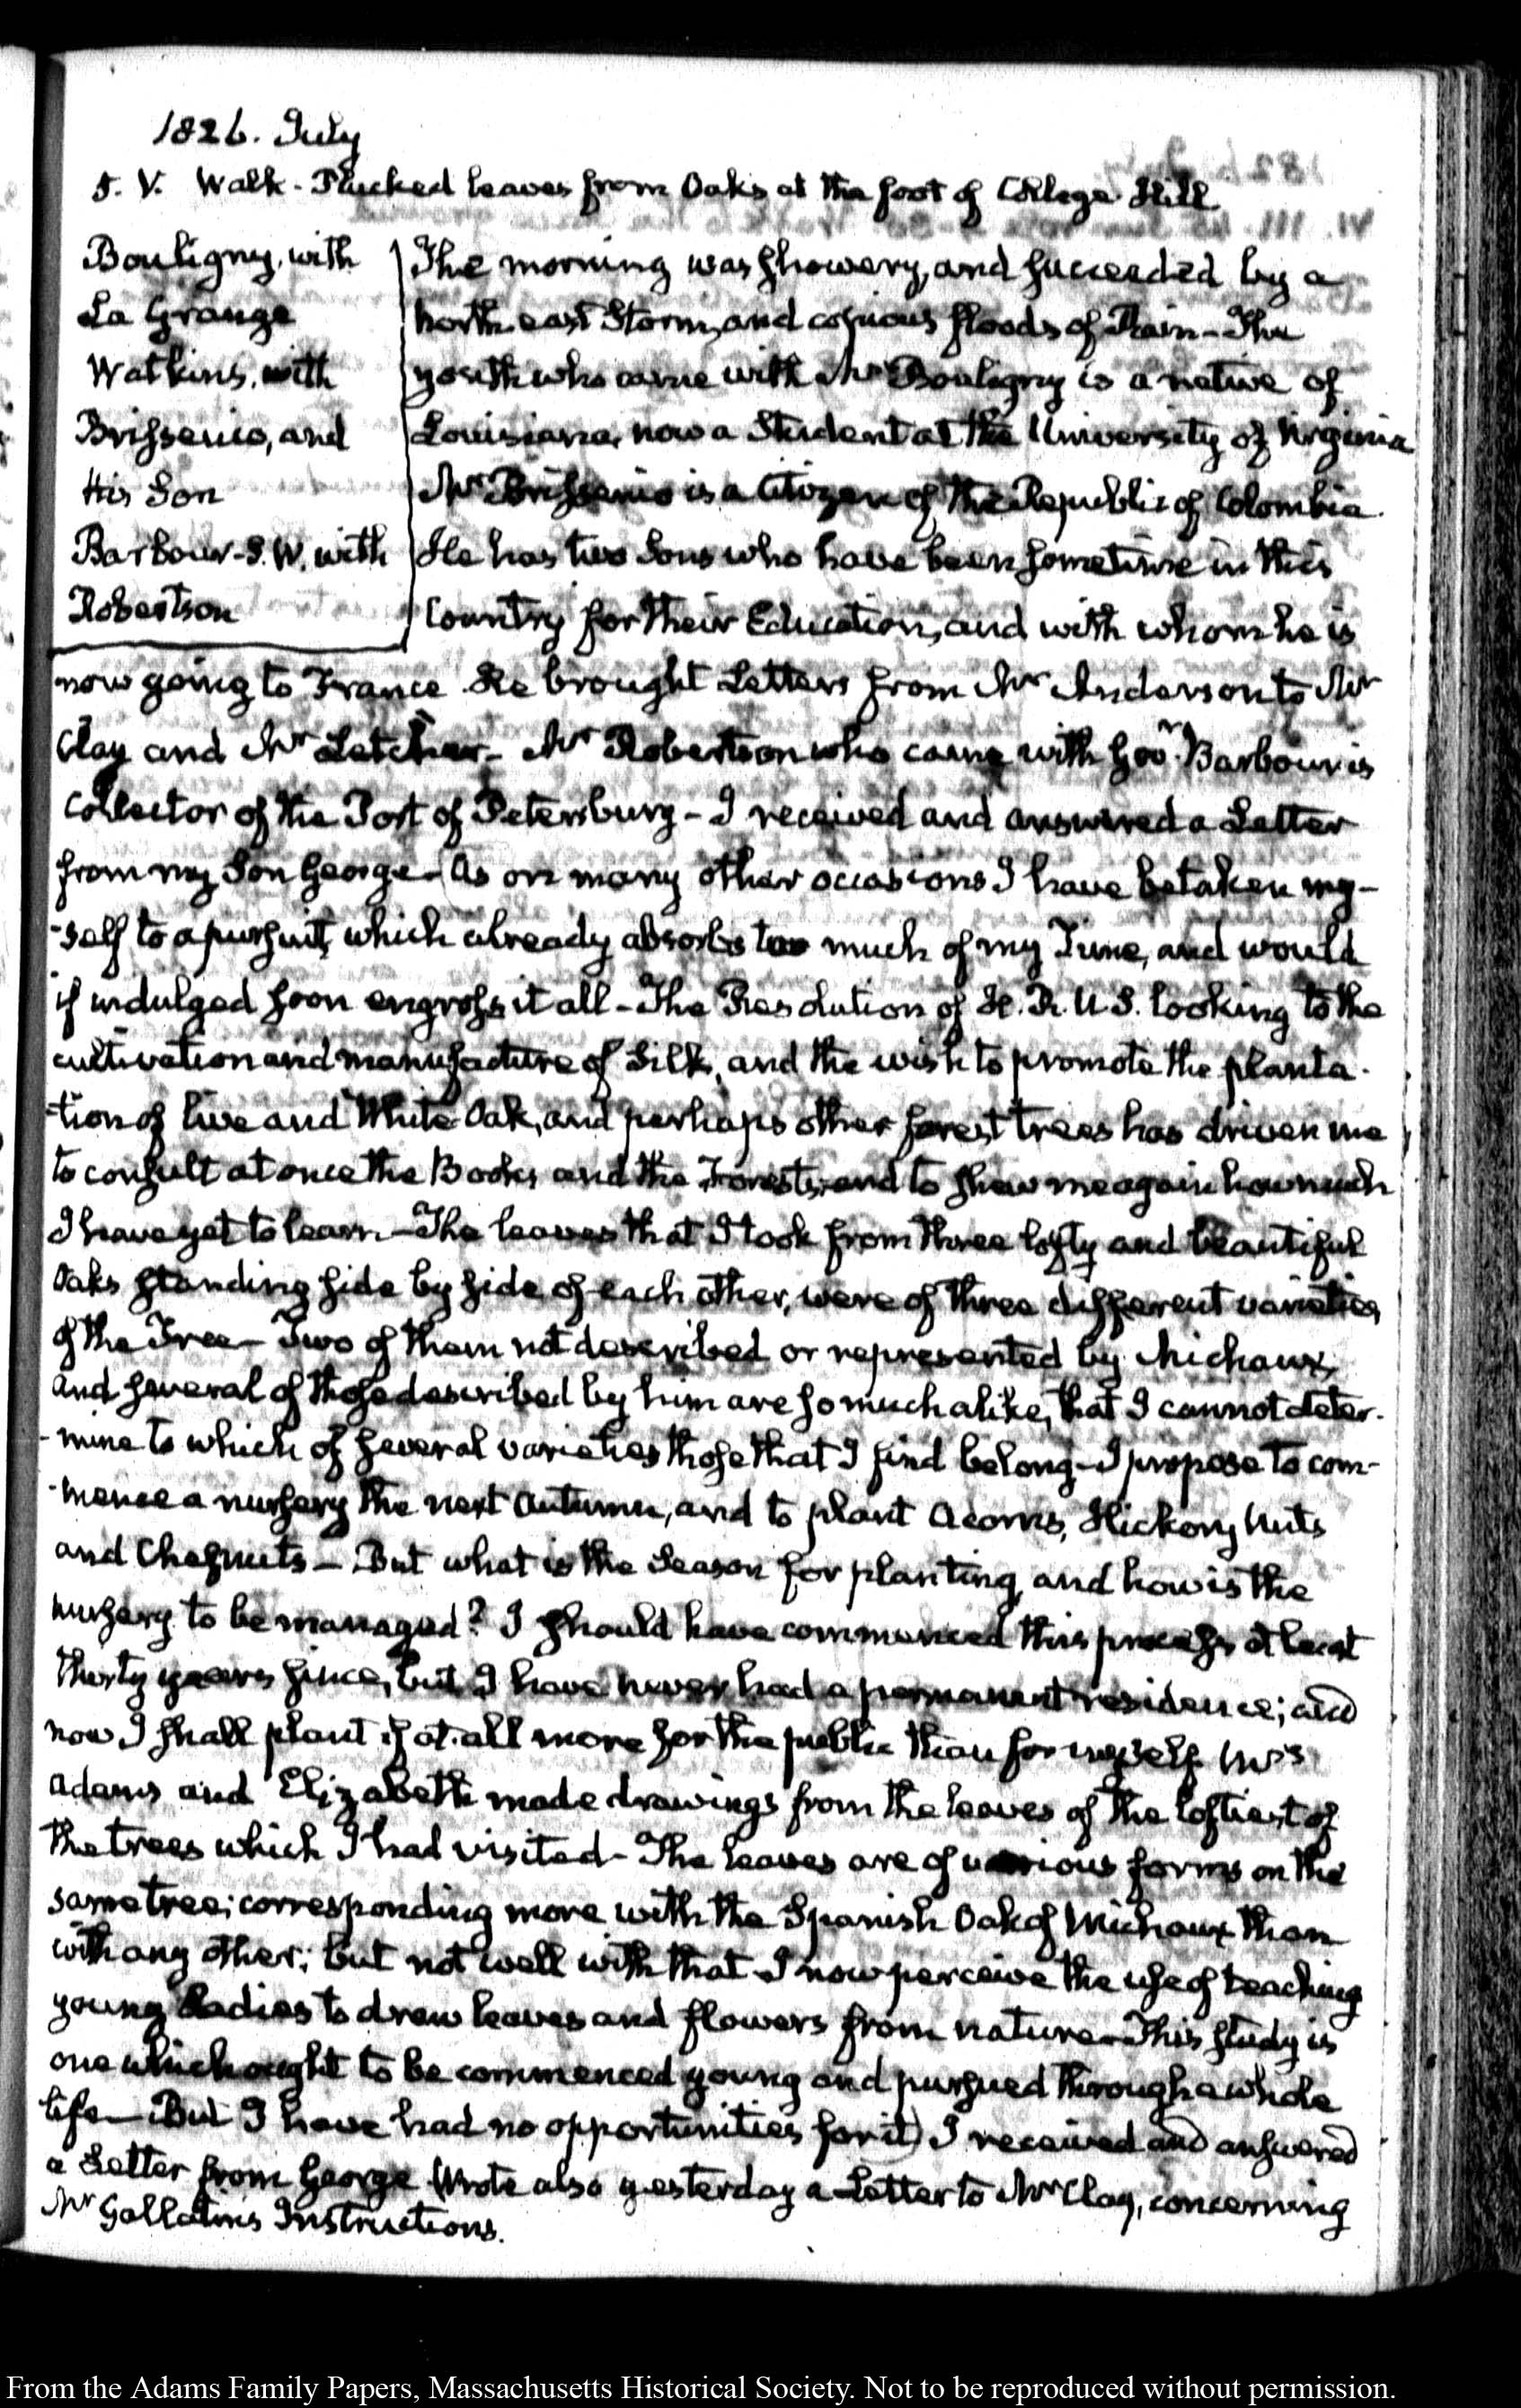 1826. July
5. V. Walk - Plucked leaves from Oaks at the foot of College Hill
Bouligny, with
La Grange
Watkins, with
Brissenio, and
His Son
Barbour-S. W. with
Robertson
The morning was showery, and succeeded by a
north east Storm, and copious floods of Rain - The
youth who came with Mr Bouligny is a native of
Louisiana, now a Student at the University of Virginia
Mr Brissenio is a Citizen of the Republic of Colombia.
He has two Sons who have been sometime in this
Country for their Education, and with whom he is
now going to France. He brought Letters from Mr Anderson to Mr
Clay and Mr Letcher - Mr Robertson who came with Govr. Barbour is
Collector of the Port of Petersburg - I received and answered a Letter
from my Son George - (As on many other occasions I have betaken my-
-self to a pursuit, which already absorbs too much of my Time, and would
if indulged soon engross it all - The Resolution of H. R. U. S. looking to the
cultivation and manufacture of Silk, and the wish to promote the planta-
-tion of live and White Oak, and perhaps other forest trees has driven me
to consult at once the Books and the Forests, and to shew me again how much
I have yet to learn - The leaves that I took from three lofty and beautiful
Oaks standing side by side of each other, were of three different varieties
of the Tree - Two of them not described or represented by Michaux,
and several of those described by him are so much alike, that I cannot deter-
-mine to which of several varieties those that I find belong - I propose to com-
-mence a nursery the next Autumn, and to plant Acorns, Hickory Nuts
and Chesnuts - But what is the Season for planting, and how is the
nursery to be managed? I should have commenced this process at least
thirty years since, but I have never had a permanent residence; and
now I shall plant if at all more for the public than for myself. Mrs
Adams and Elizabeth made drawings from the leaves of the loftiest of
the trees which I had visited - The leaves are of various forms on the
same tree; corresponding more with the Spanish Oak of Michaux than
with any other; but not well with that - I now perceive the use of teaching
young Ladies to draw leaves and flowers from nature - This study is
one which ought to be commenced young and pursued through a whole
life - But I have had no opportunities for it) I received and answered
a Letter from George (Wrote also yesterday a Letter to Mr Clay, concerning
Mr Gallatin's Instructions.
From the Adams Family Papers, Massachusetts Historical Society. Not to be reproduced without permission.